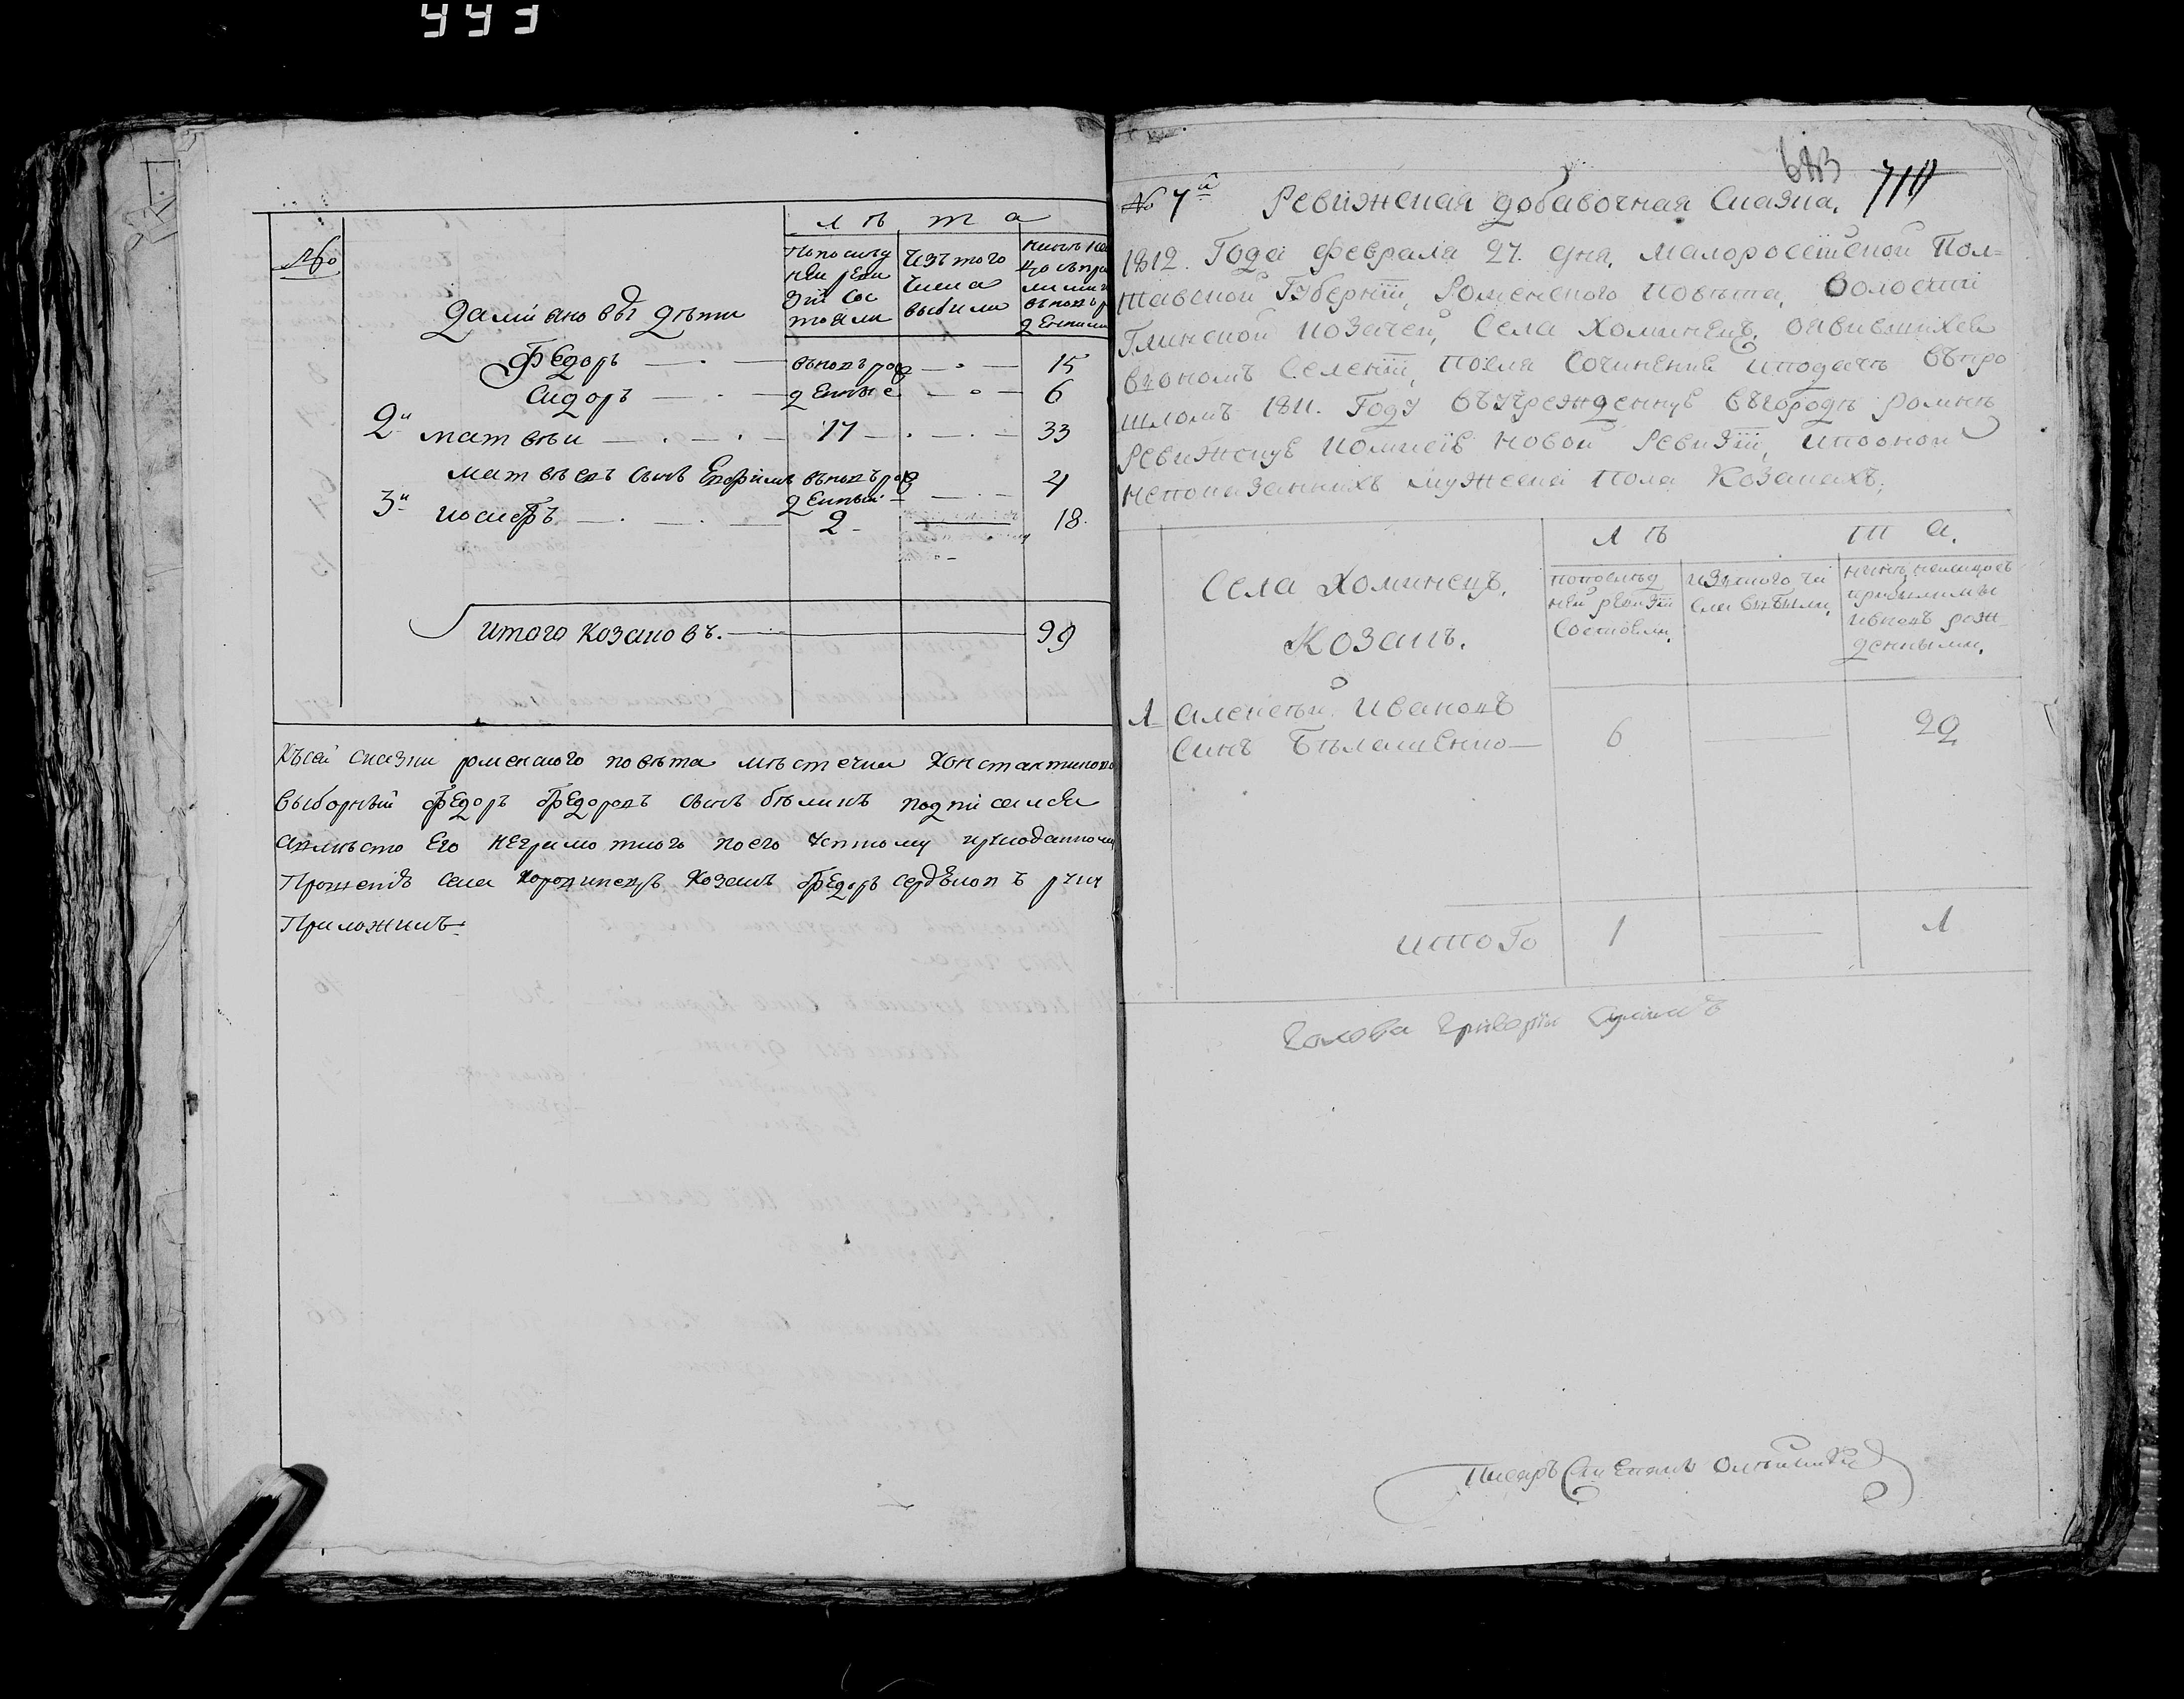 443
№
Л ѣ т а
Даміановы дѣти
По послѣд
ней реви
зіи сос
тояли
Изъ того
числа
выбыли
Федоръ
вновь рож
15
Сидоръ
денные
6
2й Матвѣй
17
33
Матвѣевъ сынъ Ефимъ
вновь рож
денный
4
3й Иосифъ
2
18
Итого козаковъ.
99
Къ сей сказки роменского повѣта мѣстечка Константинова
выборный Федоръ Федоровъ сынъ Бѣликъ подписался
а вмѣсто его неграмотного по его устному
прошенію села козакъ Федоръ руку
Приложилъ
683 710
№ 7й Ревижская добавочная Сказка.
1812. Года февраля 27. дня, Малоросѣйской Пол=
тавской Губерніи, Роменского повѣта, Волости
Глинской козачей, Села Хоминецъ, оявившихся
въ ономъ Селеніи, после Сочиненія и подачѣ въ про
шломъ 1811. Году въ учрежденную въ городѣ ромнѣ
Ревижскую комисію новой Ревизіи, и по оной
непоказанныхъ мужеска Пола Козакахъ;
Л ѣ т а.
Села Хоминецъ,
Козакъ.
по послѣд
ней ревизіи
Состояли,
изъ того чи
сла выбыли,
нинѣ на лицо съ
прибылыми
и вновь рож
денными,
1 Алексѣй Ивановъ
Синъ Бѣлашенко
6
22
итого
1
1
Голова Григорій
Писаръ Олѣйникъ